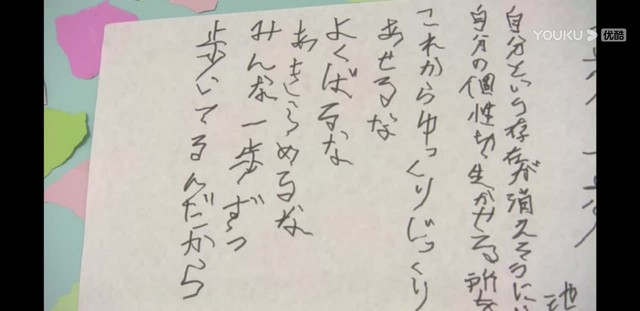 YOUKU 优酷
自分という存在が消えそうに
自分の個性生かせる所
これからゆっくりじっくり
あせるな
よくばるな
あきらめるな
みんな一歩ずつ
歩いてるんだから